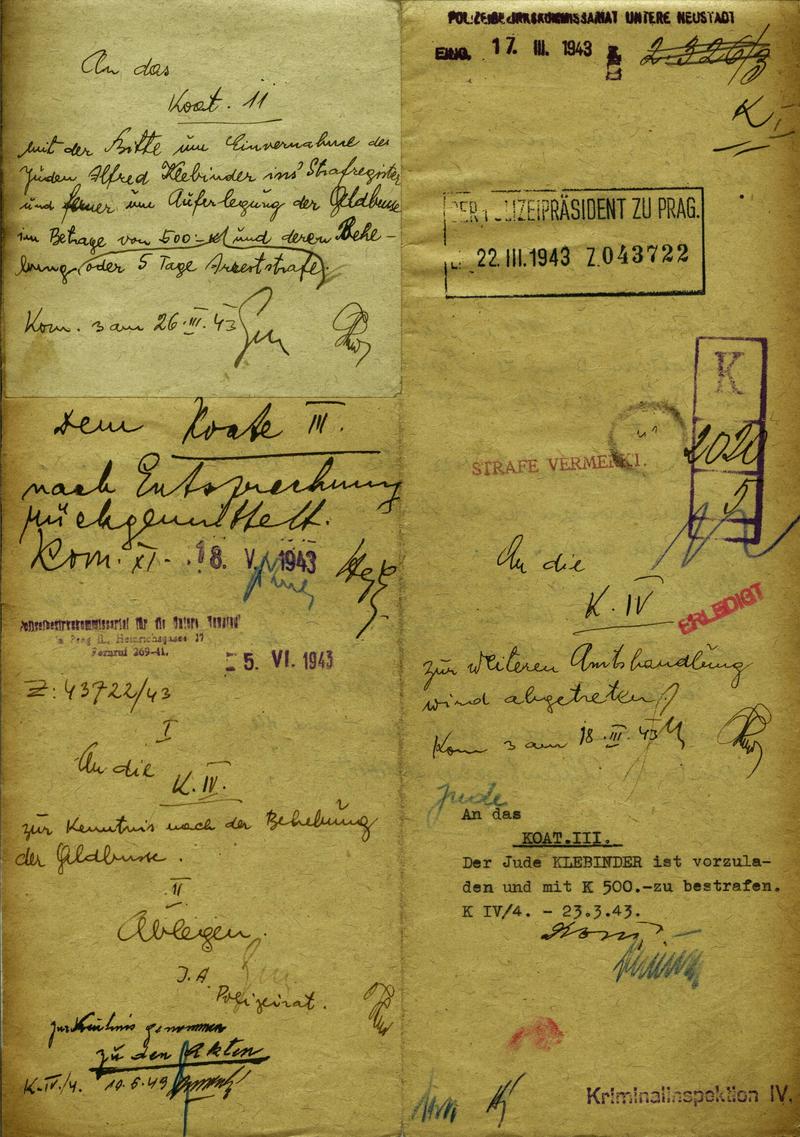 An das
Koat. 11
mit der Bitte um Einvernahme des
Juden Alfred Klebinder ins Strafregister
und ferner um Auferlegung der Geldbusse
im Betrage von 500.- und deren Behe-
bung (oder 5 Tage Arreststrafe).
Kom. 3 am 26.III.43
Dem Koate III.
nach Entsprechung
rückgemittelt.
Kom. XI. 18. V. 1943
Polizeibezirkskommissariat für die Untere Neustadt
in Prag II., Heinrichsgasse 27
Fernruf 269-41.
5. VI. 1943
Z: 43722/43
I
An die
K. IV.
zur Kenntnis nach der Behebung
der Geldbusse.
II
Ablegen.
I. A
Polizeirat.
zur Kenntnis genommen
zu den Akten
K-IV./4.
POLIZEIBEZIRKSKOMMISSARIAT UNTERE NEUSTADT
EING. 17. III. 1943
2326/3
K I
DER POLIZEIPRÄSIDENT ZU PRAG.
22.III.1943 Z.043722
K
2020
5
STRAFE VERMERKT.
An die
K. IV
ERLEDIGT
zur weiteren Amtshandlung
wird abgetreten
Kom 3 am 18.III.43
Jude
An das
KOAT.III.
Der Jude KLEBINDER ist vorzula-
den und mit K 500.-zu bestrafen.
K IV/4. - 23.3.43.
Kriminalinspektion IV.